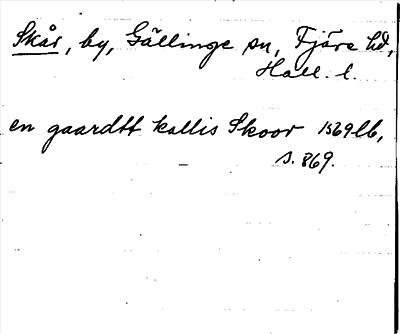 Skår, by, Gällinge sn, Fjäre hd,
Hall. l.
en gaardtt kallis Skoor 1569 lb,
s. 869.